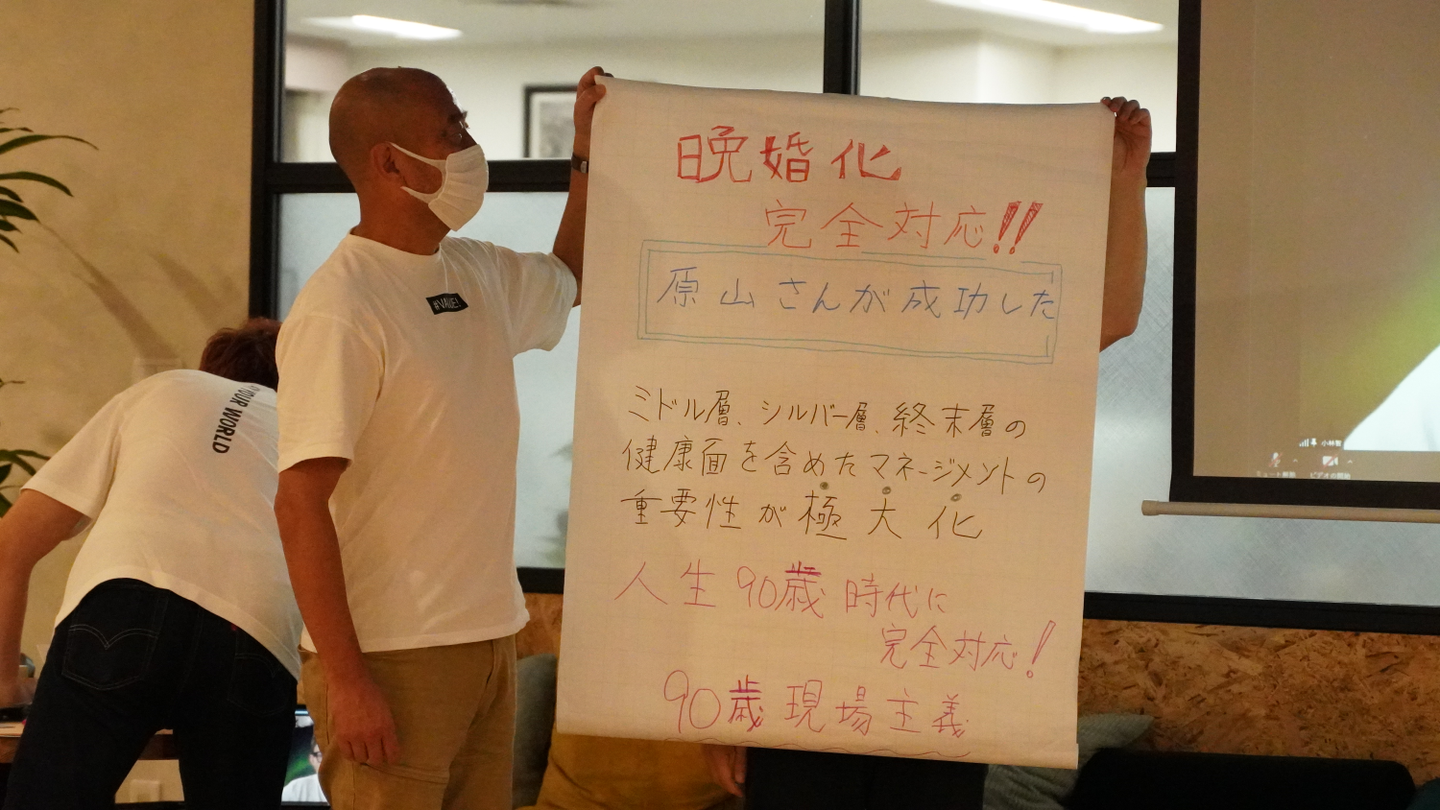 晩婚化
完全対応!!
原山さんが成功した
ミドル層、シルバー層、終末層の
健康面を含めたマネージメントの
重要性が極大化
人生90歳時代に
完全対応!
90歳現場主義
#VALUE!
YOUR WORLD
小林